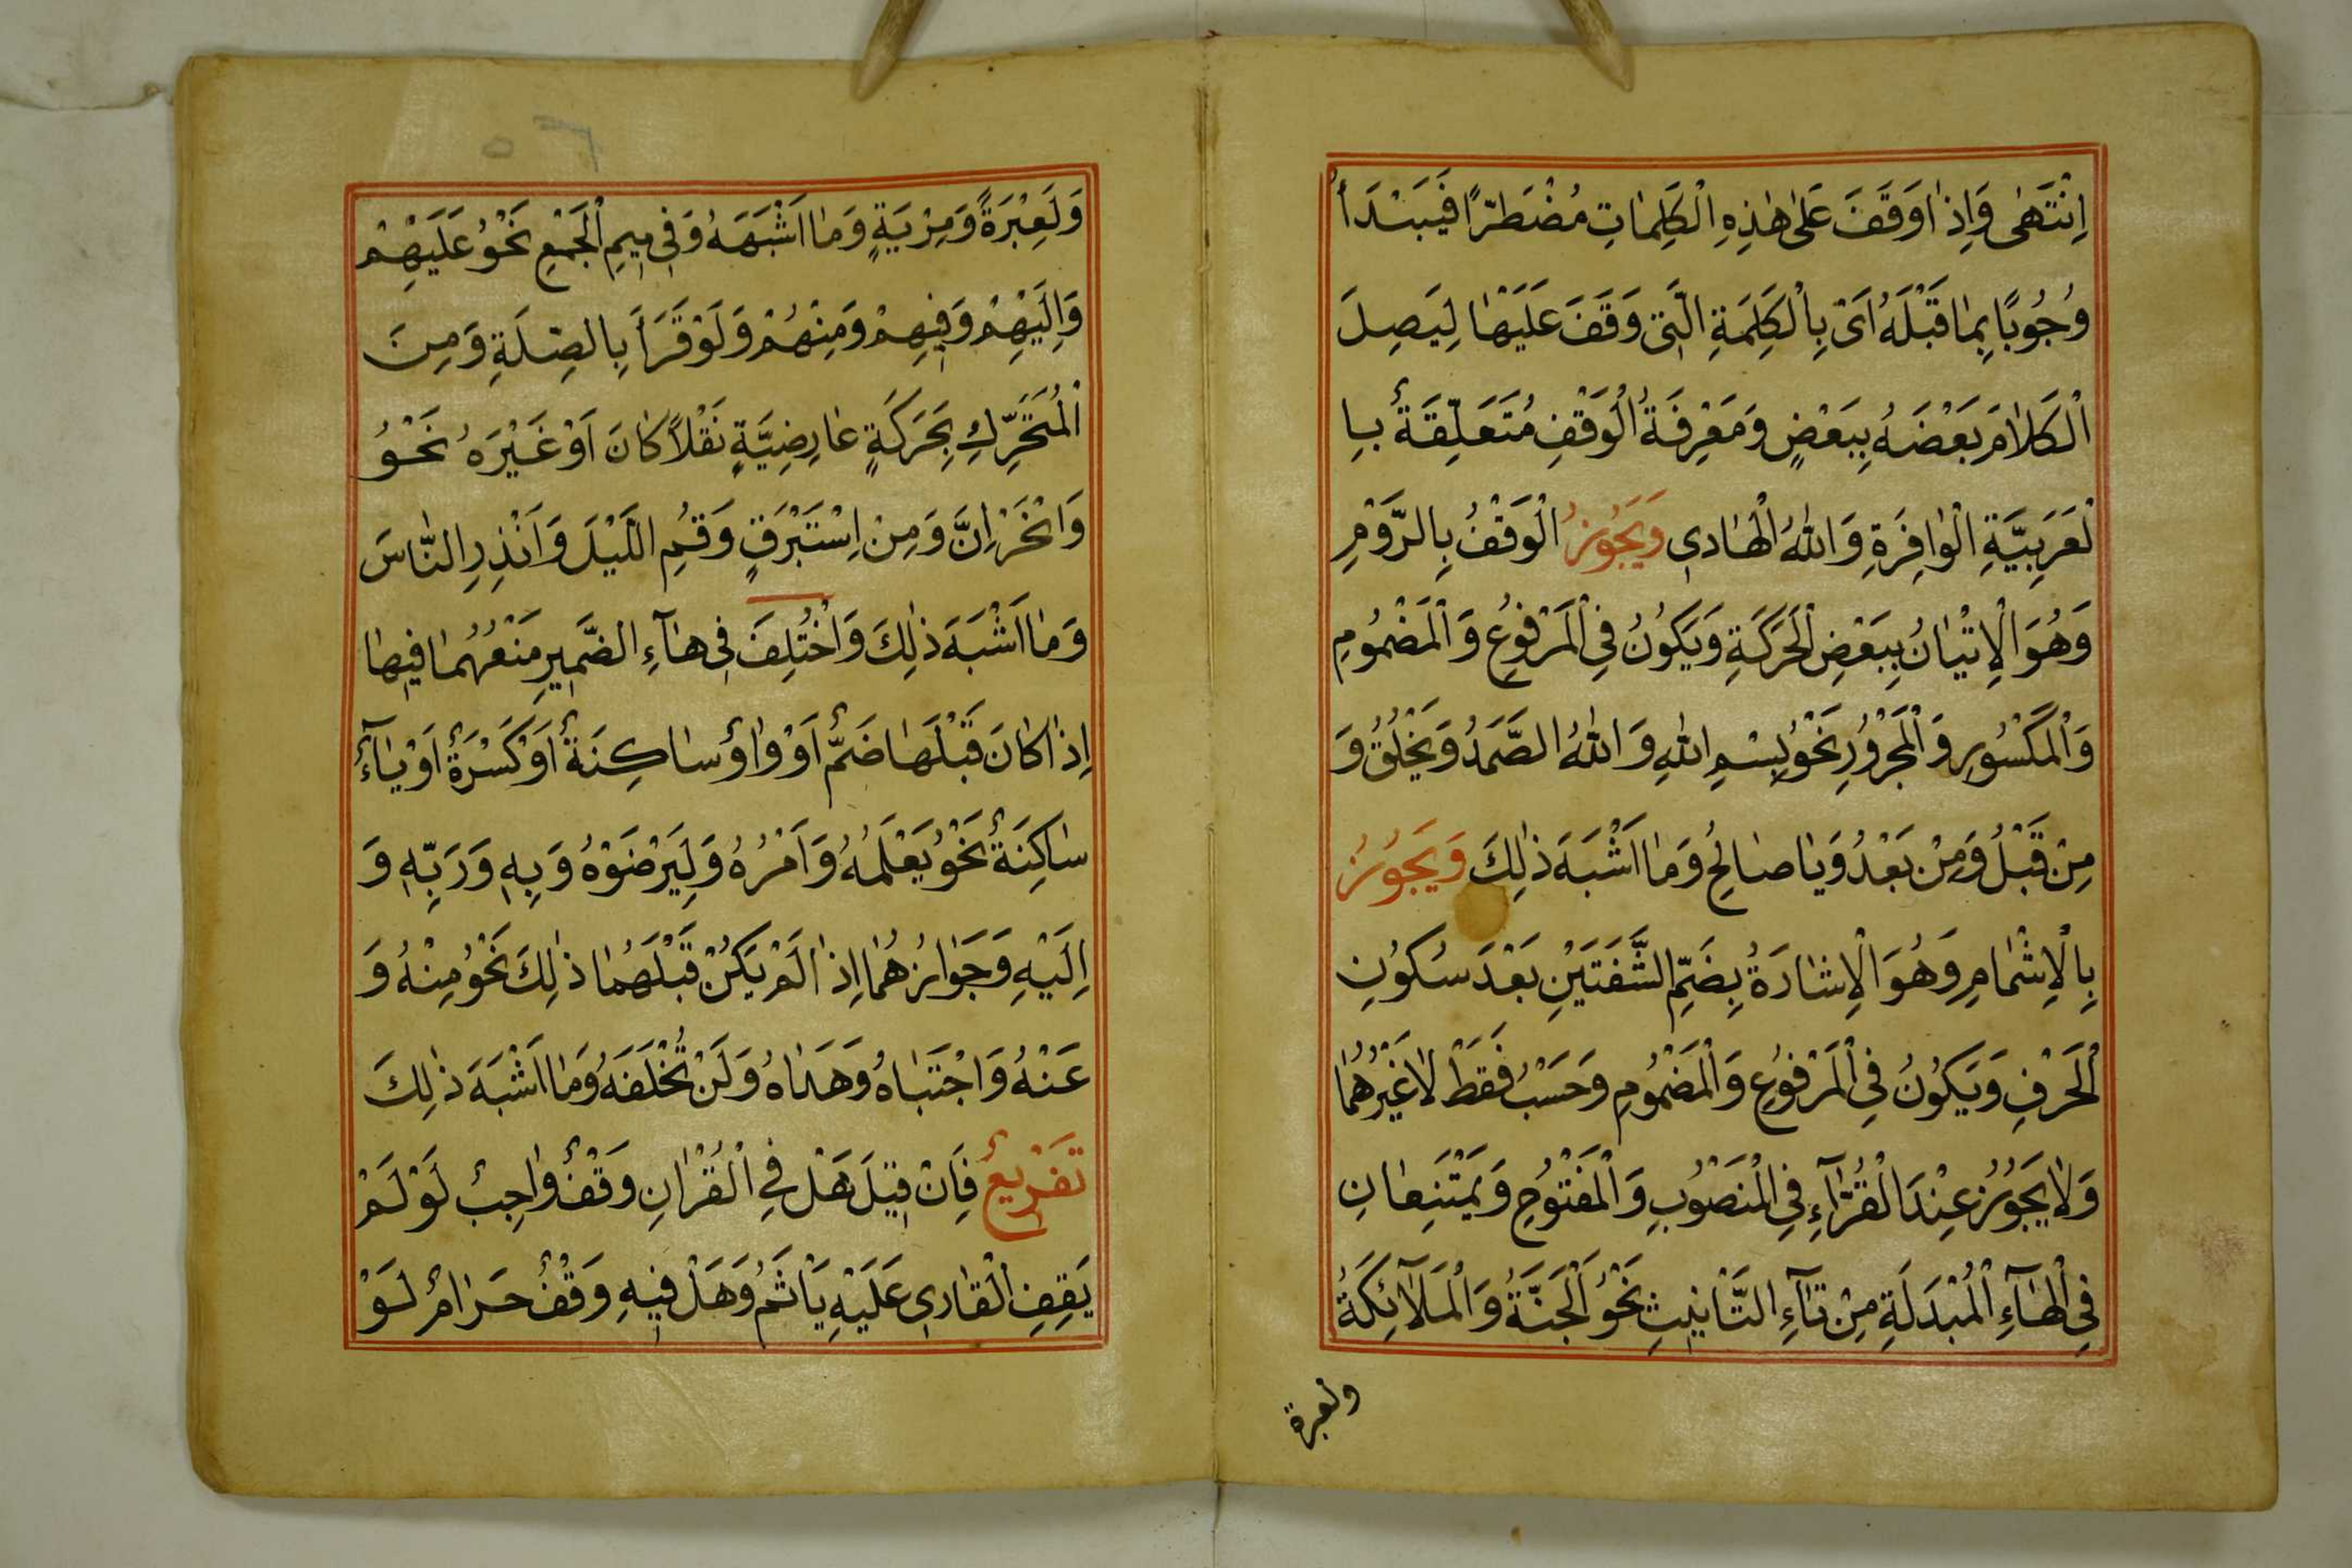 اِنْتَهٰى وَاِذٰا وَقَفَ عَلٰى هٰذِهِ الْكَلِمٰاتِ مُضْطَرًّا فَيَبْدَأُ
وُجُوبًا بِمٰا قَبْلَهُ اَىْ بِالْكَلِمَةِ الَّتِى وَقَفَ عَلَيْهٰا لِيَصِلَ
الْكَلاٰمَ بَعْضَهُ بِبَعْضٍ وَمَعْرِفَةُ الْوَقْفِ مُتَعَلِّقَةٌ بِا
لْعَرَبِيَّةِ الْوٰافِرَةِ وَاللّٰهُ الْهٰادِى وَيَجُوزُ الْوَقْفُ بِالرَّوْمِ
وَهُوَ الْاِتْيٰانُ بِبَعْضِ الْحَرَكَةِ وَيَكُونُ فِى الْمَرْفُوعِ وَالْمَضْمُومِ
وَالْمَكْسُورِ وَالْمَجْرُورِ نَحْوُ بِسْمِ اللّٰهِ وَاللّٰهُ الصَّمَدُ وَيَخْلُقُ وَ
مِنْ قَبْلُ وَمِنْ بَعْدُ وَيٰا صٰالِحُ وَمٰا اَشْبَهَ ذٰلِكَ وَيَجُوزُ
بِالْاِشْمٰامِ وَهُوَ الْاِشٰارَةُ بِضَمِّ الشَّفَتَيْنِ بَعْدَ سُكُونِ
الْحَرْفِ وَيَكُونُ فِى الْمَرْفُوعِ وَالْمَضْمُومِ وَحَسْبُ فَقَطْ لاٰ غَيْرُهُمٰا
وَلاٰ يَجُوزُ عِنْدَ الْقُرَّآءِ فِى الْمَنْصُوبِ وَالْمَفْتُوحِ وَيَمْتَنِعٰانِ
فِى الْهٰآءِ الْمُبْدَلَةِ مِنْ تٰآءِ التَّانِيثِ نَحْوُ الْجَنَّةُ وَالْمَلاٰئِكَةُ
ولعبرة
وَلَعِبْرَةً وَمِرْيَةٍ وَمٰا اَشْبَهَهُ وَفِى مِيمِ الْجَمْعِ نَحْوُ عَلَيْهِمْ
وَاِلَيْهِمْ وَفِيهِمْ وَمِنْهُمْ وَلَوْ قَرَأَ بِالصِّلَةِ وَمِنَ
الْمُتَحَرِّكِ بِحَرَكَةٍ عٰارِضِيَّةٍ نَقْلاً كٰانَ اَوْ غَيْرَهُ نَحْوُ
وَانْحَرْ اِنَّ وَمِنْ اِسْتَبْرَقٍ وَقُمِ اللَّيْلَ وَاَنْذِرِ النّٰاسَ
وَمٰا اَشْبَهَ ذٰلِكَ وَاخْتُلِفَ فِى هٰآءِ الضَّمِيرِ مَنْعُهُمٰا فِيهٰا
اِذٰا كٰانَ قَبْلَهٰا ضَمٌّ اَوْ وٰاوٌ سٰاكِنَةٌ اَوْ كَسْرَةٌ اَوْ يٰآءٌ
سٰاكِنَةٌ نَحْوُ يَعْلَمُهُ وَاَمْرُهُ وَلِيَرْضَوْهُ وَبِهِ وَرَبِّهِ وَ
اِلَيْهِ وَجَوٰازُهُمٰا اِذٰا لَمْ يَكُنْ قَبْلَهُمٰا ذٰلِكَ نَحْوُ مِنْهُ وَ
عَنْهُ وَاجْتَبٰاهُ وَهَدٰاهُ وَلَنْ تُخْلَفَهُ وَمٰا اَشْبَهَ ذٰلِكَ
تَفْرِيعٌ فَاِنْ قِيلَ هَلْ فِى الْقُرْاٰنِ وَقْفٌ وٰاجِبٌ لَوْ لَمْ
يَقِفِ الْقٰارِى عَلَيْهِ يَاْثَمُ وَهَلْ فِيهِ وَقْفٌ حَرٰامٌ لَوْ